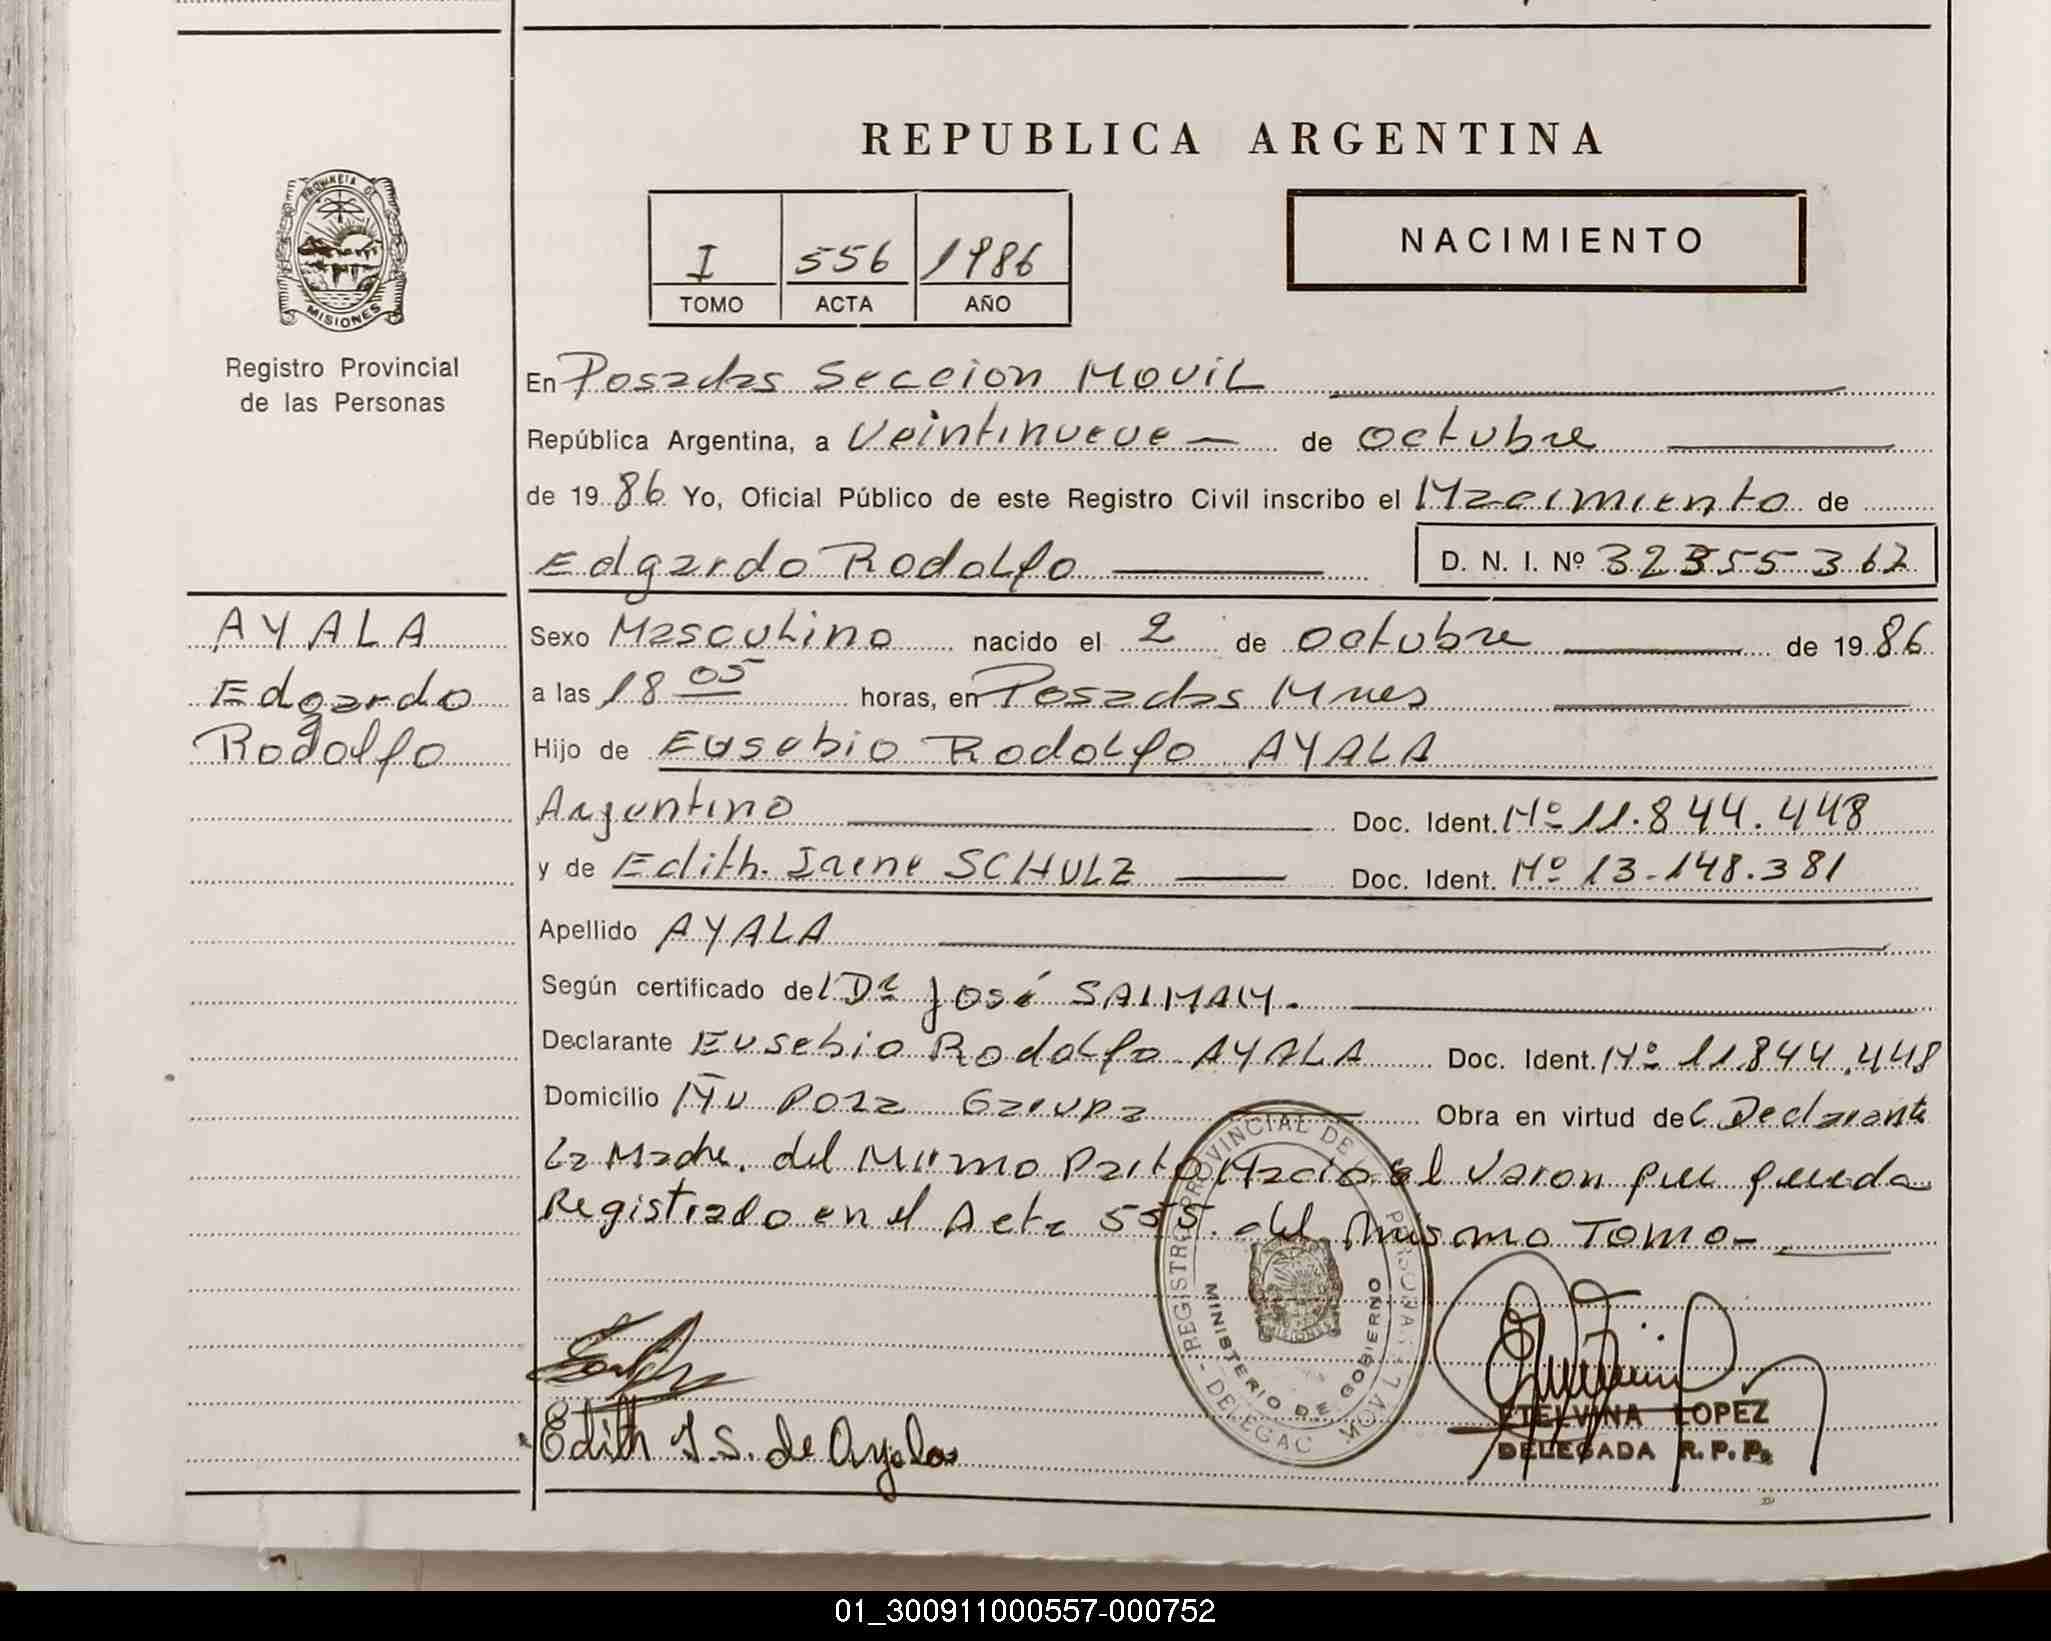 REPUBLICA ARGENTINA
PROVINCIA DE
MISIONES
I 556 1986
TOMO ACTA AÑO
NACIMIENTO
Registro Provincial
de las Personas
En Posadas Seccion Movil
República Argentina, a Veintinueve de octubre
de 19 86 Yo, Oficial Público de este Registro Civil inscribo el Nacimiento de
Edgardo Rodolfo D. N. I. Nº 32355362
AYALA
Edgardo
Rodolfo
Sexo Masculino nacido el 2 de octubre de 19 86
a las 18 05 horas, en Posadas Mnes
Hijo de Eusebio Rodolfo AYALA
Argentino Doc. Ident. Nº 11.844.448
y de Edith Irene SCHULZ Doc. Ident. Nº 13.148.381
Apellido AYALA
Según certificado del Dr José
Declarante Eusebio Rodolfo AYALA Doc. Ident. Nº 11.844.448
Domicilio Ñu Pora Garupa Obra en virtud del Declarante
La Madre. del Mismo Parto Nacio el Varon que queda
Registrado en el Acta 555 del mismo Tomo
REGISTRO PROVINCIAL DE PERSONAS
MINISTERIO DE GOBIERNO
DELEGAC MOVIL
Edith I. S. de Ayala
ETELVINA LOPEZ
DELEGADA R.P.P.
01_300911000557-000752